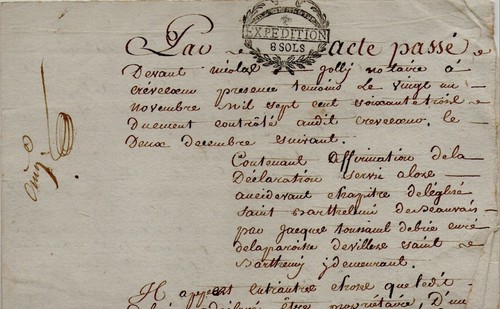 EXPEDITION
8 SOLS
Par acte passé
Devant nicolas jolly notaire à
crevecoeur presence temoins Le vingt un
novembre mil sept cent soixante trois
Duement contrôlé audit crevecoeur le
Deux decembre suivant.
Contenant Affirmation dela
Déclaration servie alors
auxidevant chapitre deléglise
saint Barthelemi deBeauvais
par jacque toussaint debrie curé
delaparoisse devillers saint
Barthemy ydemeurant.
Il appert entrautres chose que ledit
être propriétaire, D'un